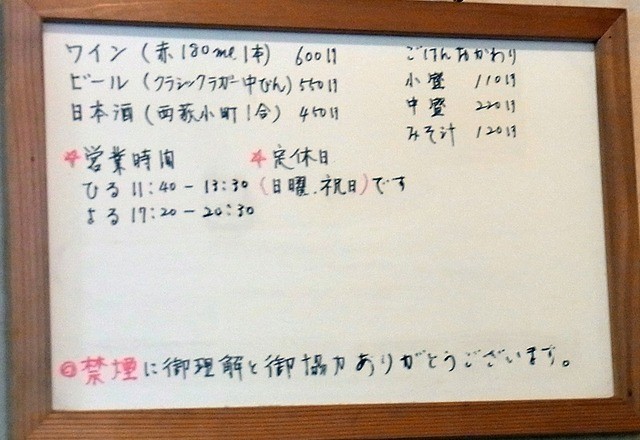 ワイン (赤 180ml 1本) 600円
ビール (クラシックラガー中びん) 550円
日本酒 (西萩小町 1合) 450円
ごはんおかわり
小盛 110円
中盛 220円
みそ汁 120円
☆営業時間
ひる 11:40 - 13:30
よる 17:20 - 20:30
☆定休日
(日曜、祝日)です
◎禁煙に御理解と御協力ありがとうございます。